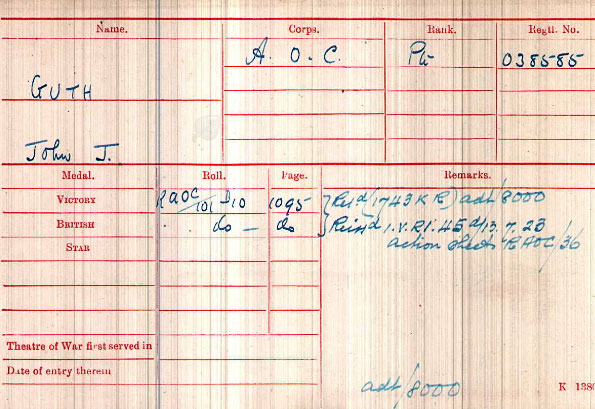 Name. Corps. Rank. Regtl. No.
A. O. C. Pte 038585
GUTH
John J.
Medal. Roll. Page. Remarks.
VICTORY RAOC/101 D10 1095 } Ret'd (1743 K R) adt/8000
BRITISH do — do } Reiss'd 1.V.R1. 45 d/13.7.23
STAR action sheets RAOC/36
Theatre of War first served in
Date of entry therein
adt/8000
K 1380